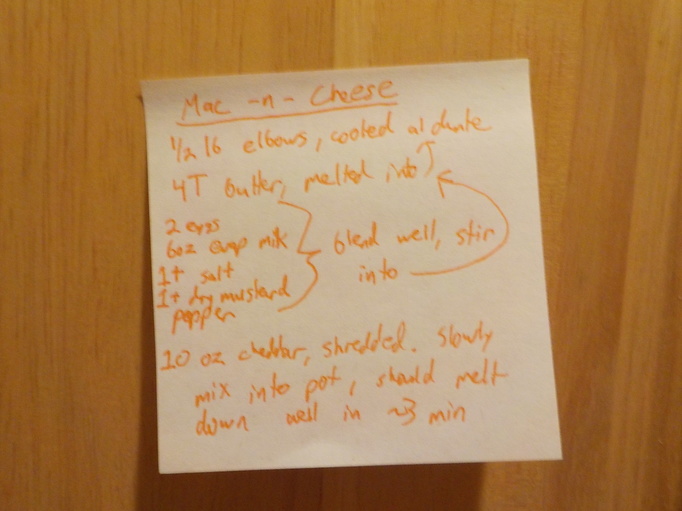 Mac -n- Cheese
1/2 lb elbows, cooked al dente
4T butter, melted into
2 eggs
6oz evap milk
1t salt
1t dry mustard
pepper
blend well, stir
into
10 oz cheddar, shredded. Slowly
mix into pot, should melt
down well in ~3 min